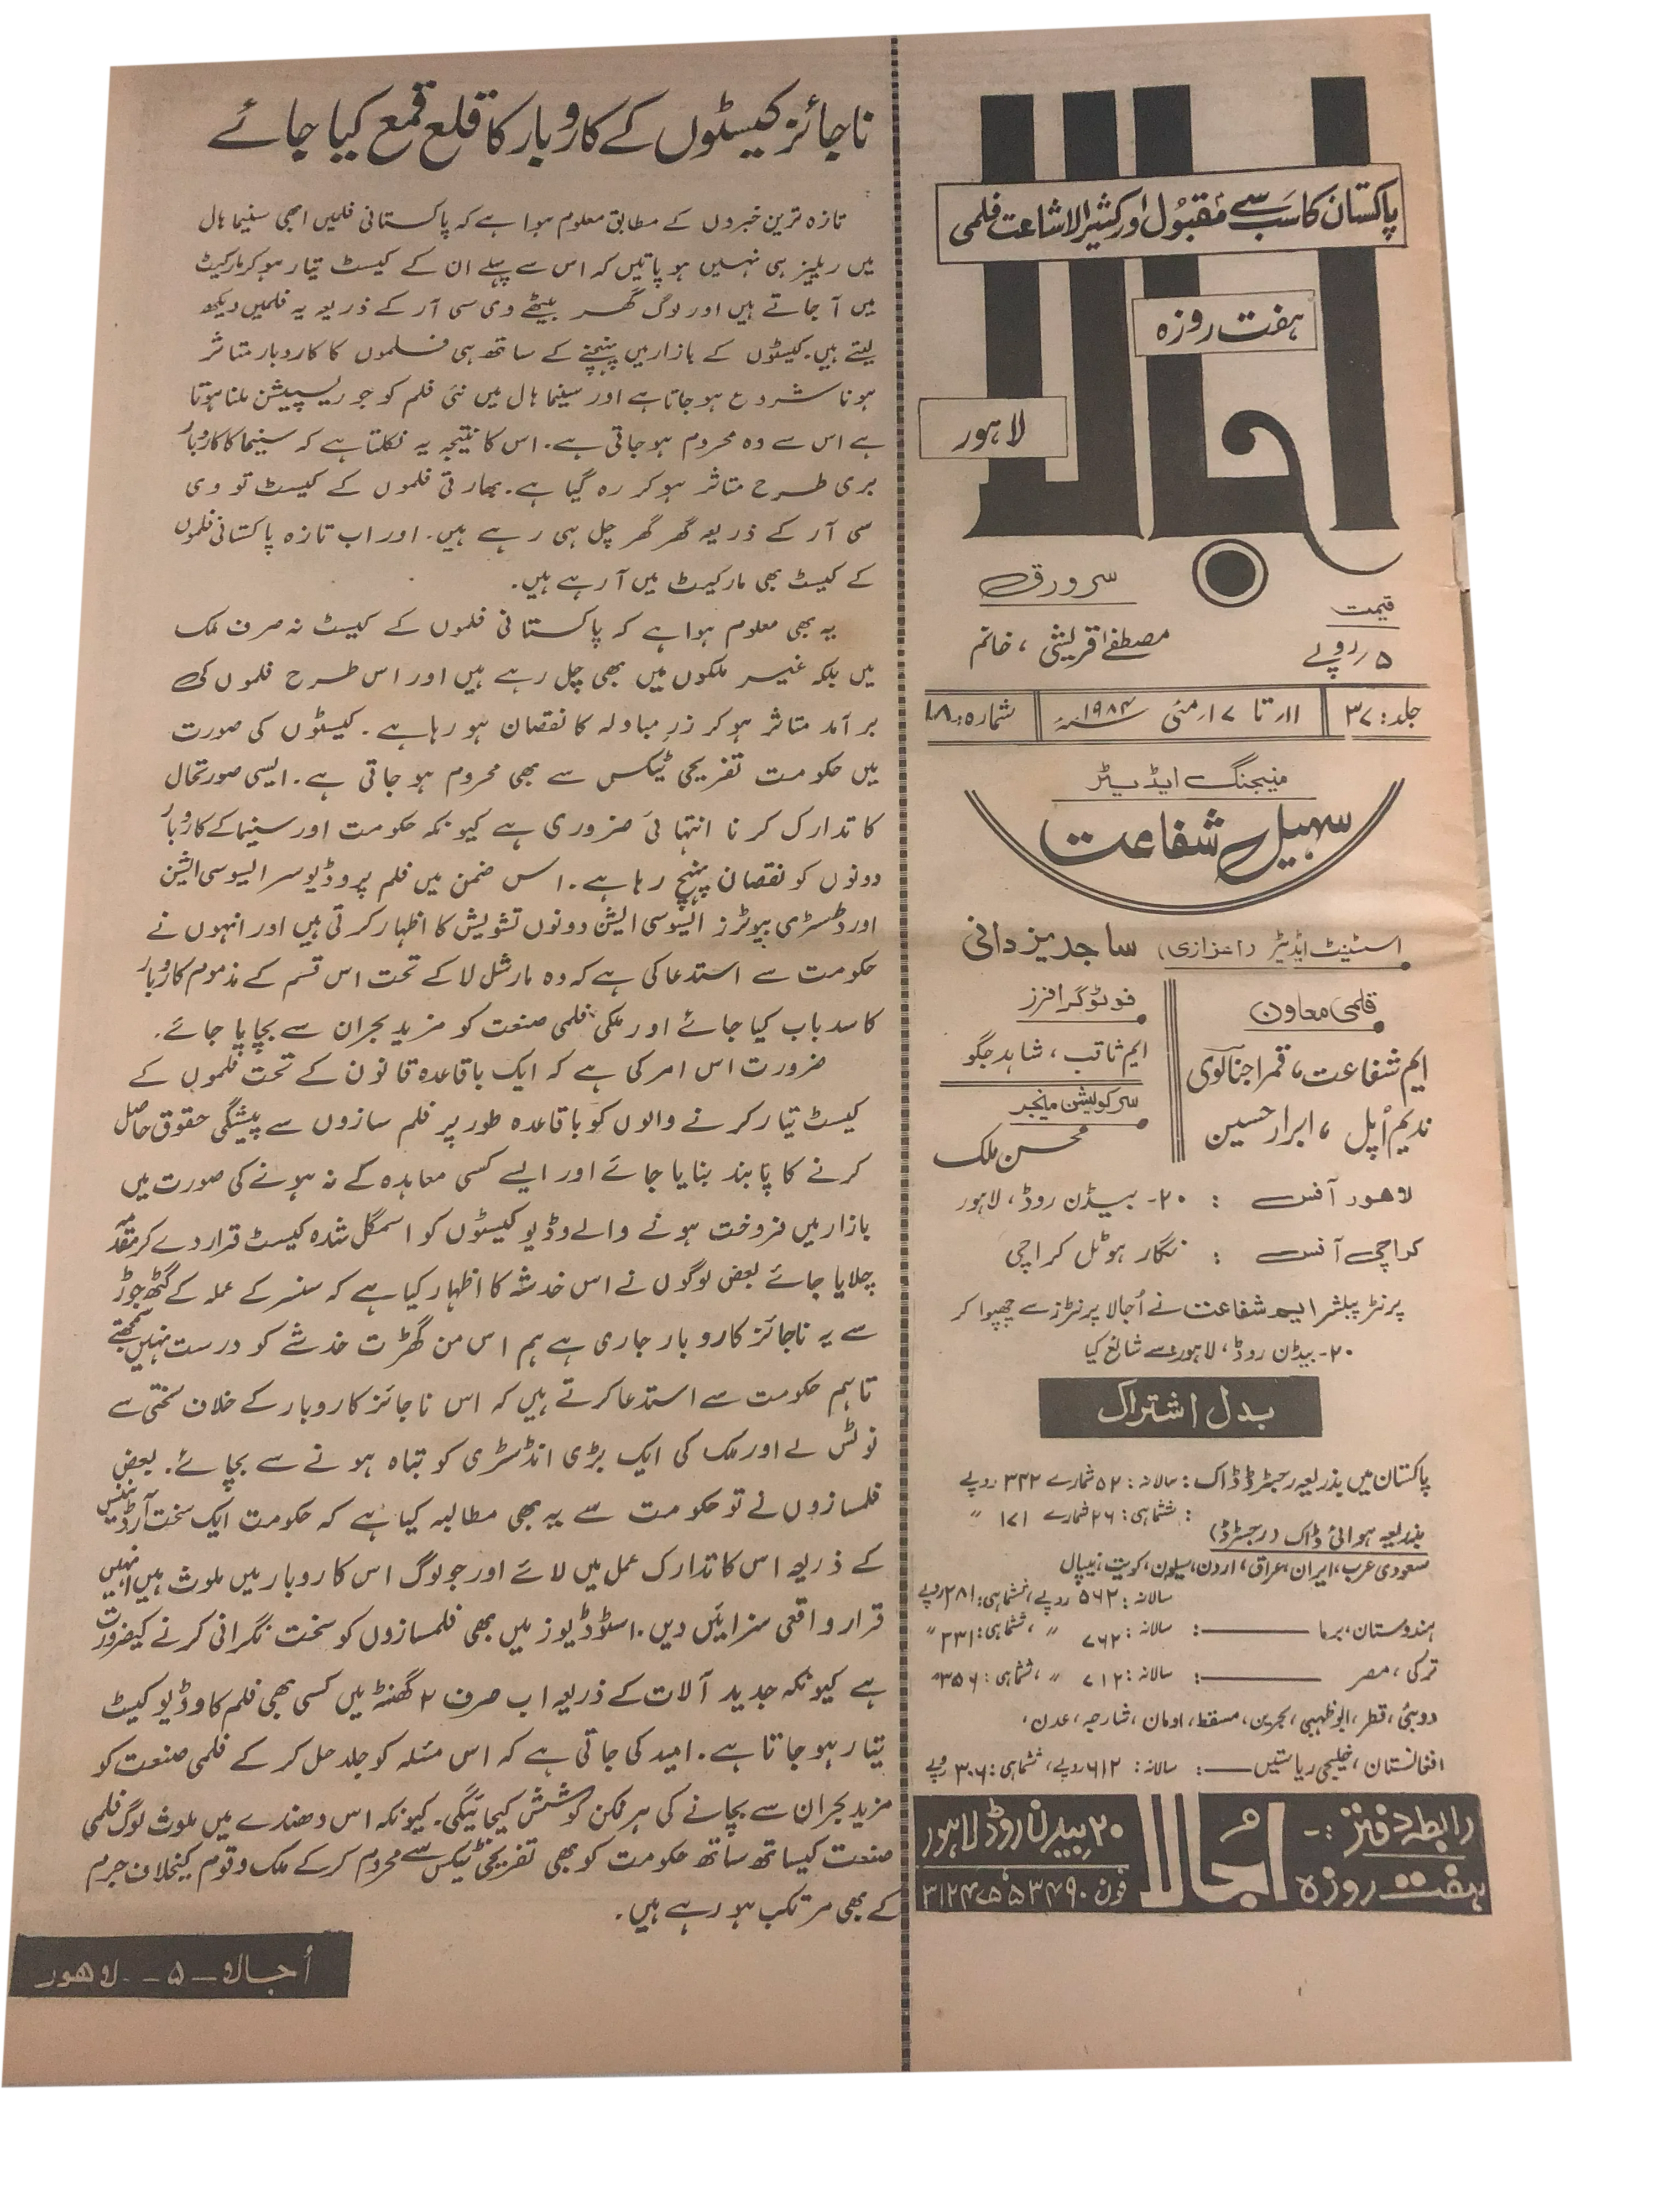 پاکستان کا سب سے مقبول اور کثیر الاشاعت فلمی
ہفت روزہ
اجالا
لاہور
سرورق
مصطفےٰ قریشی ، خانم
قیمت
۵ روپے
جلد: ۳۷
۱۱ تا ۱۷ مئی ۱۹۸۴ء
شمارہ: ۱۸
منیجنگ ایڈیٹر
سہیل شفاعت
اسٹینٹ ایڈیٹر (اعزازی) ساجد یزدانی
قلمی معاون
ایم شفاعت، قمر اجنالوی
ندیم اُپل ، ابرار حسین
فوٹوگرافرز
ایم ثاقب ، شاہد جگو
سرکولیشن منیجر
محسن ملک
لاہور آفس : ۲۰۔ بیڈن روڈ، لاہور
کراچی آفس : نگار ہوٹل کراچی
پرنٹر پبلشر ایم شفاعت نے اُجالا پرنٹرز سے چھپوا کر
۲۰۔ بیڈن روڈ، لاہور سے شائع کیا
بدل اشتراک
پاکستان میں بذریعہ رجسٹرڈ ڈاک: سالانہ: ۵۲ شمارے ۳۴۲ روپے
: ششماہی: ۲۶ شمارے ۱۷۱ 〃
بذریعہ ہوائی ڈاک (رجسٹرڈ)
سعودی عرب، ایران، عراق، اردن، سیلون، کویت، نیپال
سالانہ: ۵۶۲ روپے، ششماہی: ۲۸۱ روپے
ہندوستان، برما ——: سالانہ: ۷۶۲ 〃 ، ششماہی: ۳۳۱ 〃
ترکی، مصر ——: سالانہ: ۷۱۲ 〃 ، ششماہی: ۳۵۶ 〃
دوبئی، قطر، ابوظہبی، بحرین، مسقط، اومان، شارجہ، عدن،
افغانستان، خلیجی ریاستیں ——: سالانہ: ۶۱۲ روپے، ششماہی: ۳۰۶ روپے
رابطہ دفتر :-
ہفت روزہ اُجالا
۲۰ بیڈن روڈ لاہور
فون ۵۳۴۹۰
ناجائز کیسٹوں کے کاروبار کا قلع قمع کیا جائے
تازہ ترین خبروں کے مطابق معلوم ہوا ہے کہ پاکستانی فلمیں ابھی سنیما ہال
میں ریلیز ہی نہیں ہو پاتیں کہ اس سے پہلے ان کے کیسٹ تیار ہو کر مارکیٹ
میں آ جاتے ہیں اور لوگ گھر بیٹھے وی سی آر کے ذریعہ یہ فلمیں دیکھ
لیتے ہیں۔ کیسٹوں کے بازار میں پہنچنے کے ساتھ ہی فلموں کا کاروبار متاثر
ہونا شروع ہو جاتا ہے اور سینما ہال میں نئی فلم کو جو ریسپیشن ملنا ہوتا
ہے اس سے وہ محروم ہو جاتی ہے۔ اس کا نتیجہ یہ نکلتا ہے کہ سنیما کا کاروبار
بری طرح متاثر ہو کر رہ گیا ہے۔ بھارتی فلموں کے کیسٹ تو وی
سی آر کے ذریعہ گھر گھر چل ہی رہے ہیں۔ اور اب تازہ پاکستانی فلموں
کے کیسٹ بھی مارکیٹ میں آ رہے ہیں۔
یہ بھی معلوم ہوا ہے کہ پاکستانی فلموں کے کیسٹ نہ صرف ملک
میں بلکہ غیر ملکوں میں بھی چل رہے ہیں اور اس طرح فلموں کی
برآمد متاثر ہو کر زرِ مبادلہ کا نقصان ہو رہا ہے۔ کیسٹوں کی صورت
میں حکومت تفریحی ٹیکس سے بھی محروم ہو جاتی ہے۔ ایسی صورتحال
کا تدارک کرنا انتہائی ضروری ہے کیونکہ حکومت اور سنیما کے کاروبار
دونوں کو نقصان پہنچ رہا ہے۔ اس ضمن میں فلم پروڈیوسر ایسوسی ایشن
اور ڈسٹری بیوٹرز ایسوسی ایشن دونوں تشویش کا اظہار کرتی ہیں اور انہوں نے
حکومت سے استدعا کی ہے کہ وہ مارشل لا کے تحت اس قسم کے مذموم کاروبار
کا سدباب کیا جائے اور ملکی فلمی صنعت کو مزید بحران سے بچایا جائے۔
ضرورت اس امر کی ہے کہ ایک باقاعدہ قانون کے تحت فلموں کے
کیسٹ تیار کرنے والوں کو باقاعدہ طور پر فلم سازوں سے پیشگی حقوق حاصل
کرنے کا پابند بنایا جائے اور ایسے کسی معاہدہ کے نہ ہونے کی صورت میں
بازار میں فروخت ہونے والے وڈیو کیسٹوں کو اسمگل شدہ کیسٹ قرار دے کر مقدمہ
چلایا جائے بعض لوگوں نے اس خدشہ کا اظہار کیا ہے کہ سنسر کے عملہ کے گٹھ جوڑ
سے یہ ناجائز کاروبار جاری ہے ہم اس من گھڑت خدشے کو درست نہیں سمجھتے
تاہم حکومت سے استدعا کرتے ہیں کہ اس ناجائز کاروبار کے خلاف سختی سے
نوٹس لے اور ملک کی ایک بڑی انڈسٹری کو تباہ ہونے سے بچائے۔ بعض
فلمسازوں نے تو حکومت سے یہ بھی مطالبہ کیا ہے کہ حکومت ایک سخت آرڈیننس
کے ذریعہ اس کا تدارک عمل میں لائے اور جو لوگ اس کاروبار میں ملوث ہیں انہیں
قرار واقعی سزائیں دیں۔ اسٹوڈیوز میں بھی فلمسازوں کو سخت نگرانی کرنے کی ضرورت
ہے کیونکہ جدید آلات کے ذریعہ اب صرف ۲ گھنٹہ میں کسی بھی فلم کا وڈیو کیسٹ
تیار ہو جاتا ہے۔ امید کی جاتی ہے کہ اس مسئلہ کو جلد حل کر کے فلمی صنعت کو
مزید بحران سے بچانے کی ہر ممکن کوشش کیجائیگی۔ کیونکہ اس دھندے میں ملوث لوگ فلمی
صنعت کیساتھ ساتھ حکومت کو بھی تفریحی ٹیکس سے محروم کر کے ملک و قوم کیخلاف جرم
کے بھی مرتکب ہو رہے ہیں۔
اُجالا – ۵ – لاہور